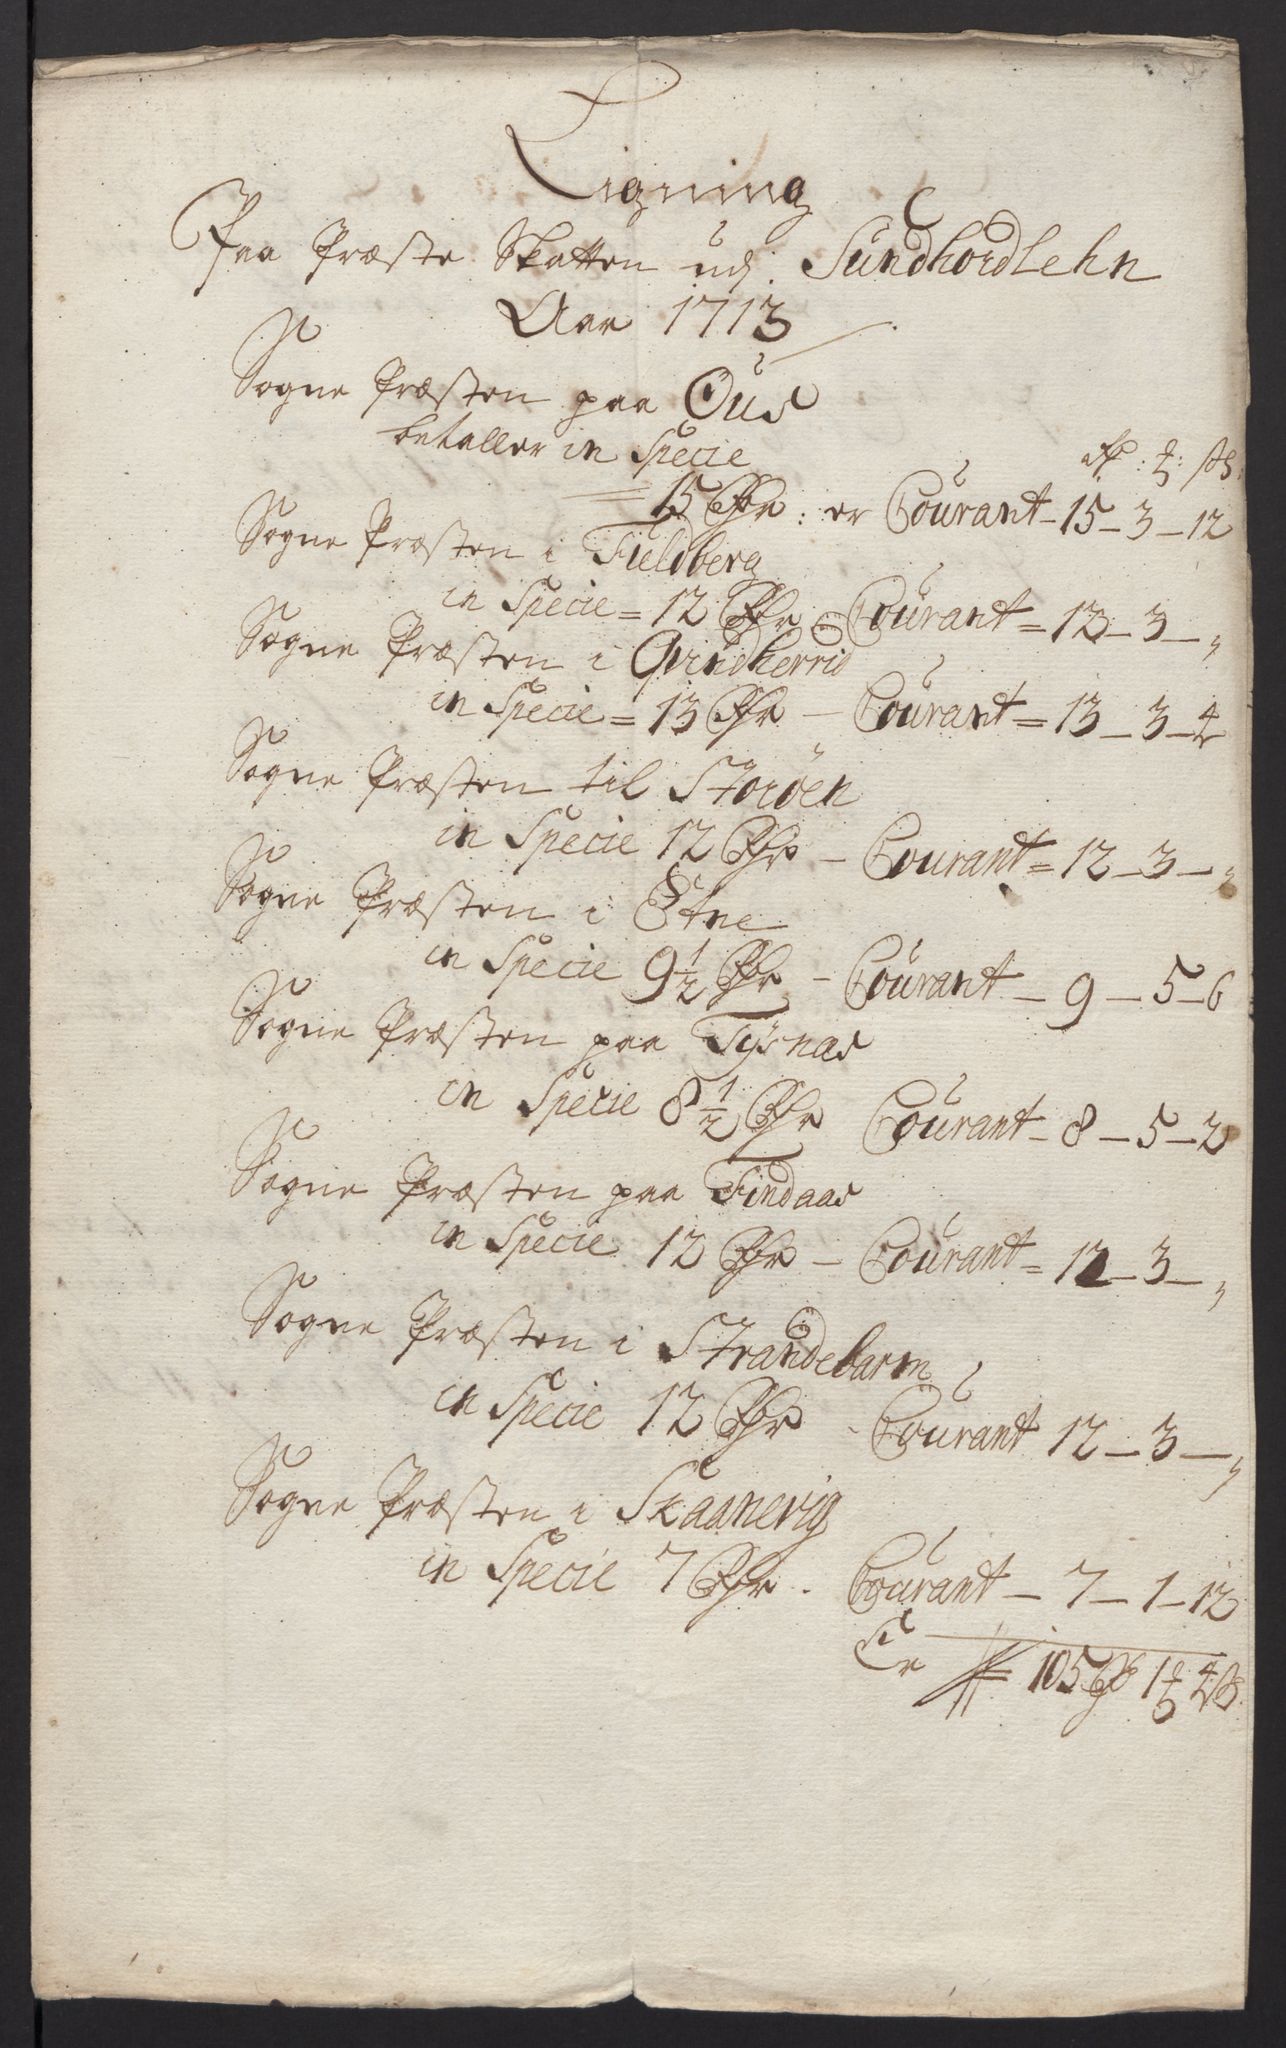 Ligning
Paa Præste Skatten udj. Sundhordlehn
Aar 1713
Sogne Præsten paa Ous
betaller in Specie
Rdr : ₰ : ß
15 Rdr : er Courant - 15 - 3 - 12
Sogne Præsten i Fieldberg
in Specie = 12 Rdr Courant = 12 - 3 - „
Sogne Præsten i Qvindherrid
in Specie = 13 Rdr - Courant = 13 - 3 - 4
Sogne Præsten til Storöen
in Specie 12 Rdr - Courant = 12 - 3 - „
Sogne Præsten i Etne
in Specie 9 1/2 Rdr - Courant - 9 - 5 - 6
Sogne Præsten paa Tysnæs
in Specie 8 1/2 Rdr Courant - 8 - 5 - 2
Sogne Præsten paa Findaas
in Specie 12 Rdr - Courant = 12 - 3 - „
Sogne Præsten i Strandebarm
in Specie 12 Rdr - Courant 12 - 3 - „
Sogne Præsten i Skaanevig
in Specie 7 Rdr . Courant - 7 - 1 - 12
Er = 105 Rdr 1 ₰ 4 ß.